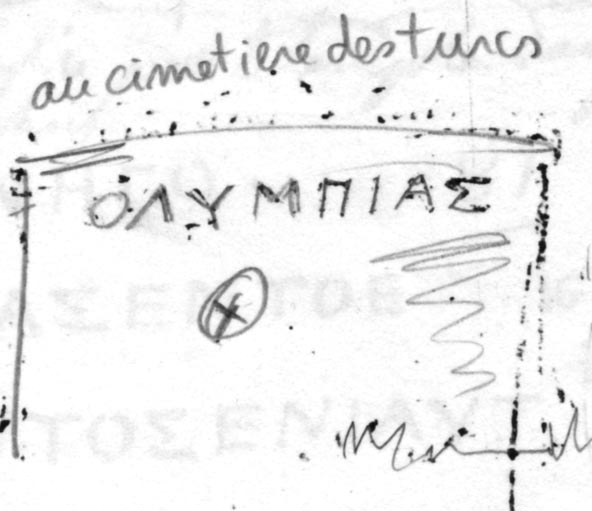 au cimetiere des turcs
ΟΛΥΜΠΙΑΣ